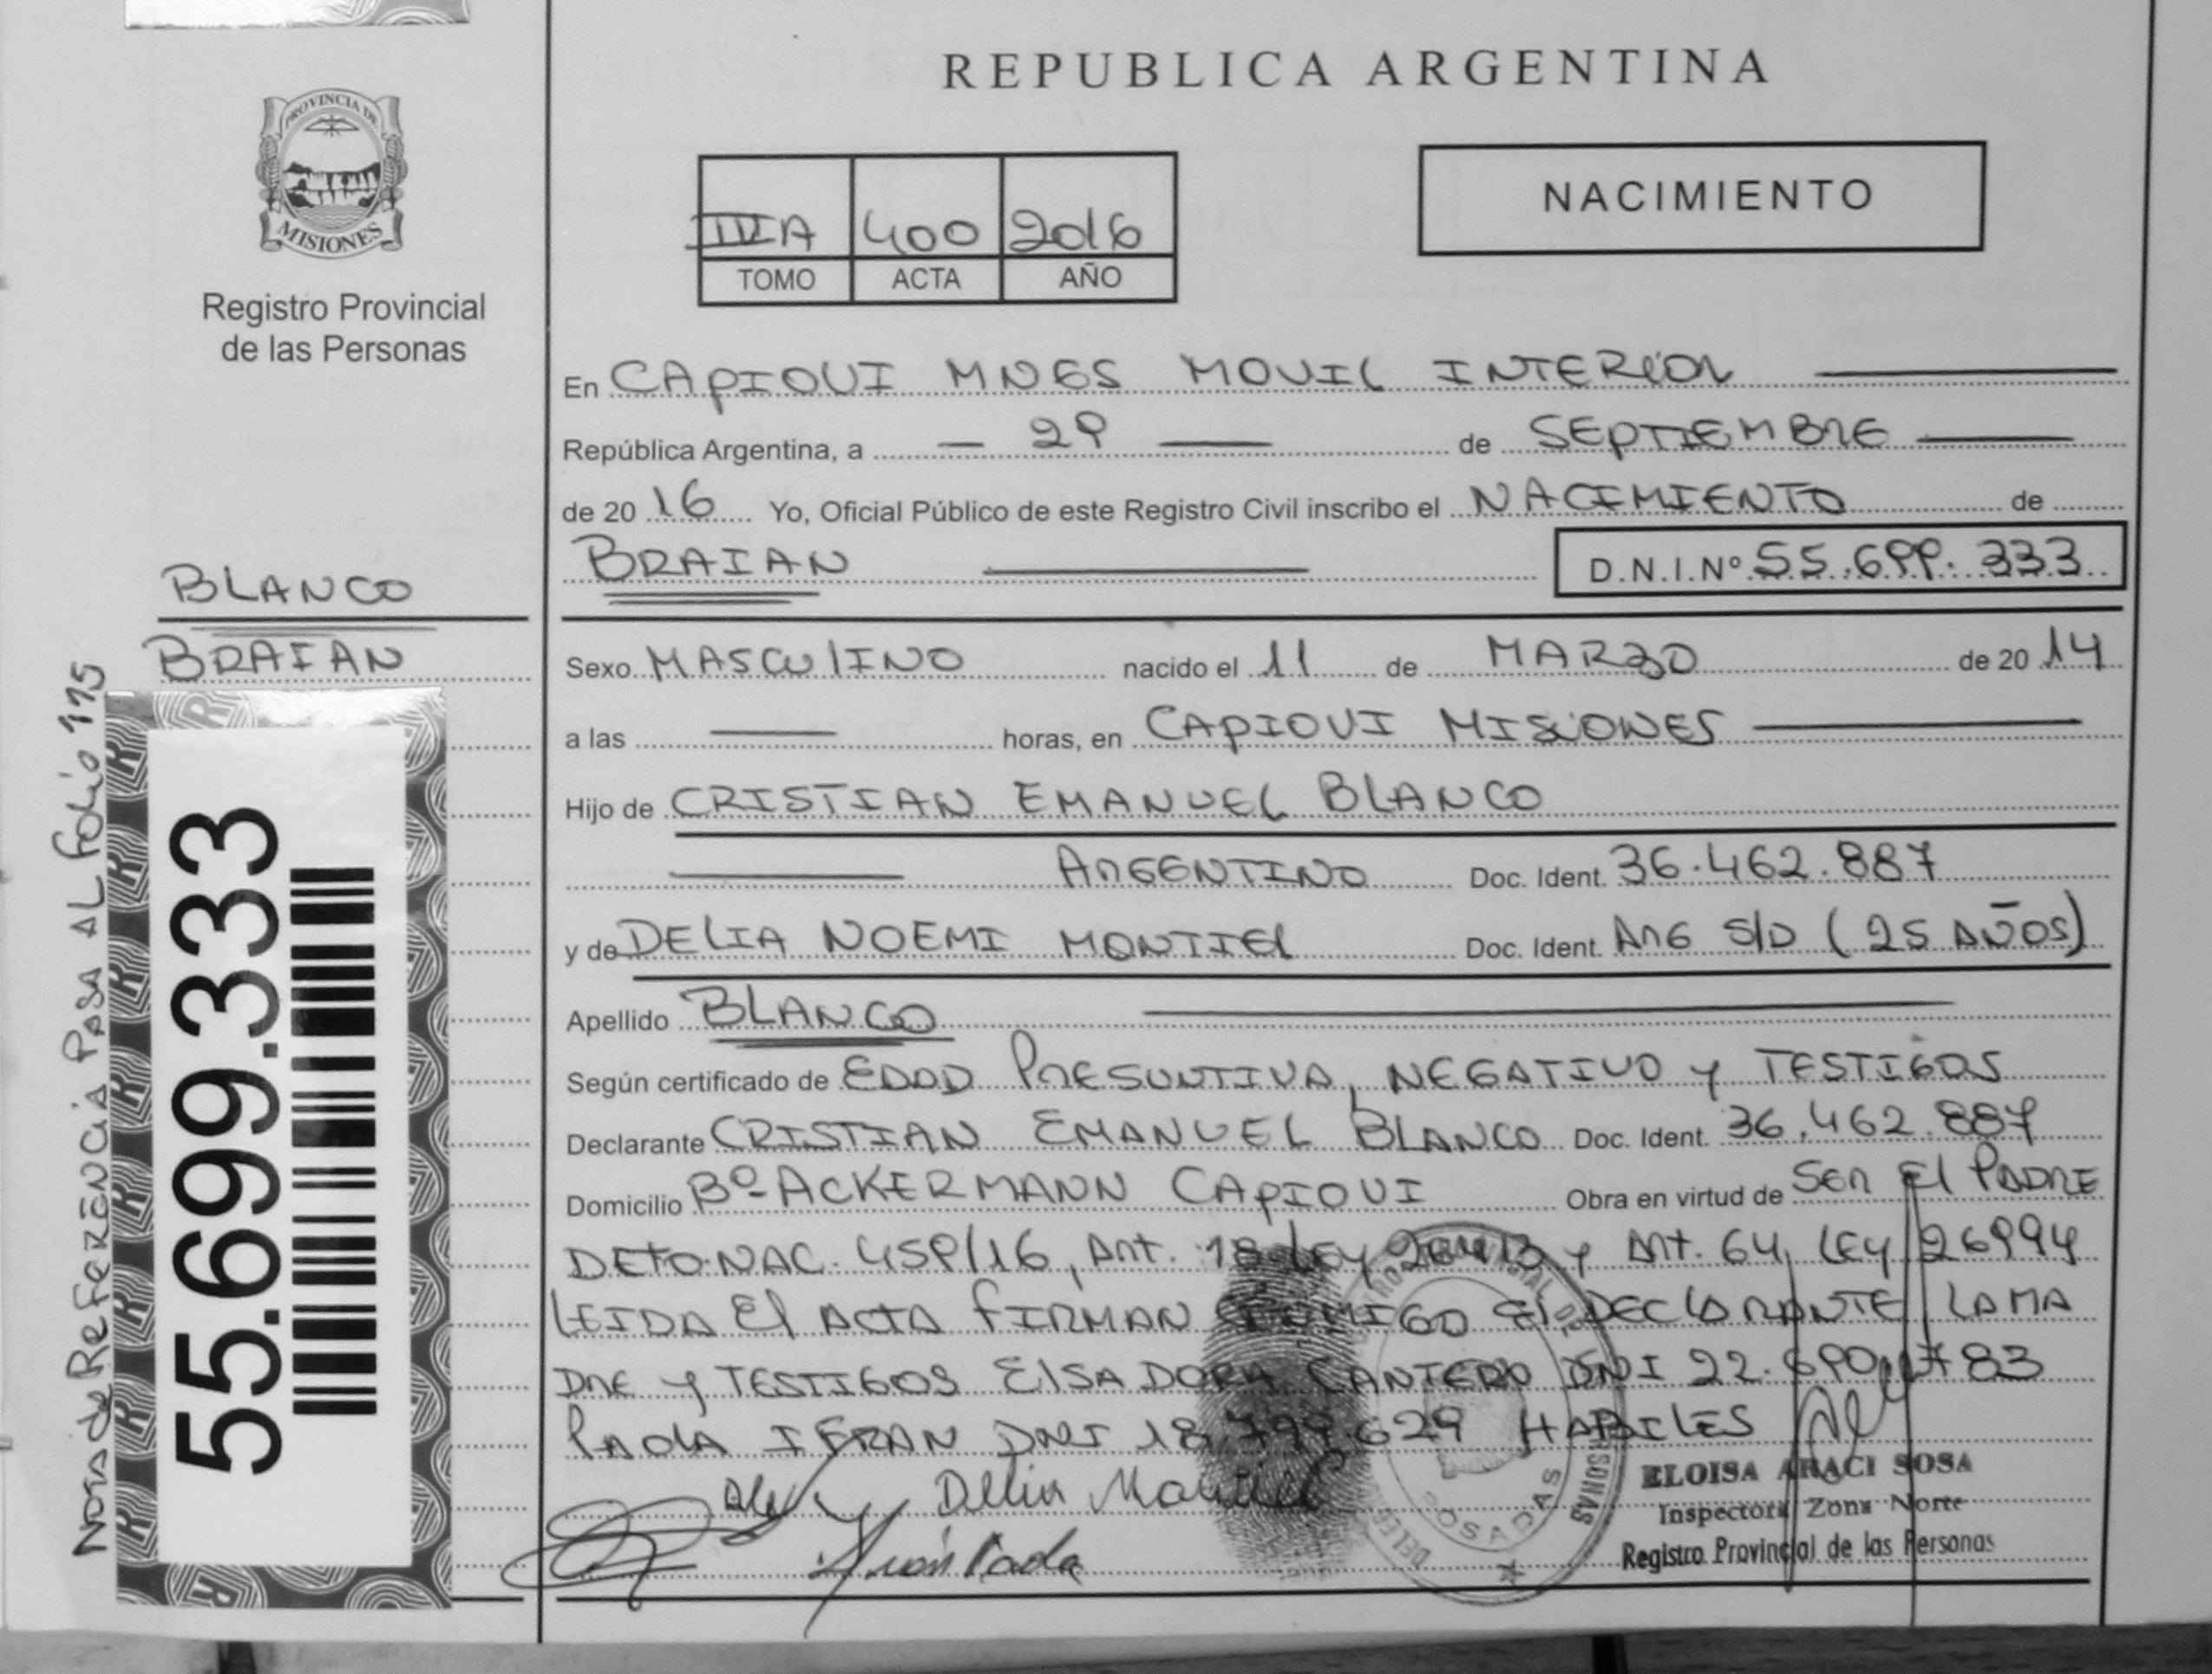 REPUBLICA ARGENTINA
PROVINCIA DE
MISIONES
Registro Provincial
de las Personas
400 2016
TOMO ACTA AÑO
NACIMIENTO
En CAPIOVI MNES MOVIL INTERIOR
República Argentina, a 29 de SEPTIEMBRE
de 20 16 Yo, Oficial Público de este Registro Civil inscribo el NACIMIENTO de
BRAIAN D.N.I.Nº 55.699.333
BLANCO
BRAIAN
Nota de Referencia Pasa AL folio 115
55.699.333
Sexo MASCULINO nacido el 11 de MARZO de 20 14
a las horas, en CAPIOVI MISIONES
Hijo de CRISTIAN EMANUEL BLANCO
ARGENTINO Doc. Ident. 36.462.887
y de DELIA NOEMI MONTIEL Doc. Ident. ARG S/D (25 AÑOS)
Apellido BLANCO
Según certificado de EDAD PRESUNTIVA, NEGATIVO y TESTIGOS
Declarante CRISTIAN EMANUEL BLANCO Doc. Ident. 36.462.887
Domicilio Bº ACKERMANN CAPIOVI Obra en virtud de SER El PADRE
DETO.NAC. 459/16, Art. 18 LEY 26413 y Art. 64 LEY 26994
LEIDA El ACTA FIRMAN CONMIGO El DECLARANTE LA MA
DRE y TESTIGOS ELSA DORA CANTERO DNI 22.690.783
PAOLA IFRAN DNI 18.799.629 HABILES
Delia Montiel
POSADAS
ELOISA ARACI SOSA
Inspectora Zona Norte
Registro Provincial de las Personas